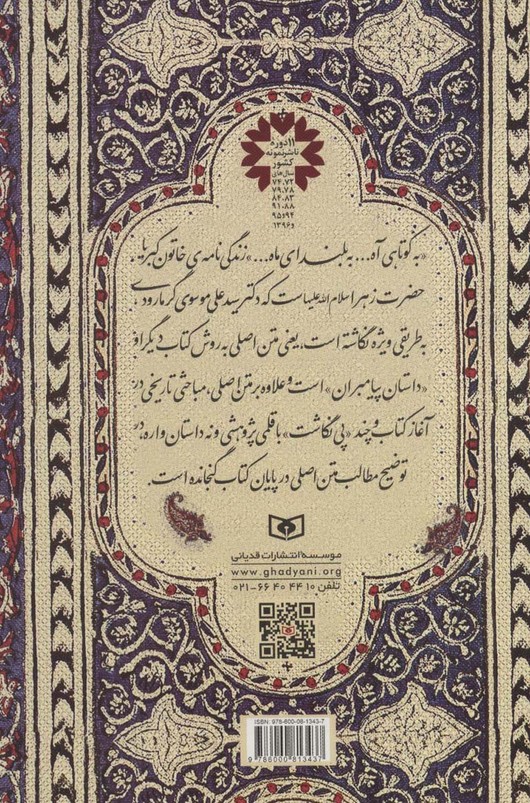 ۱۱ دوره
ناشر نمونه
کشور
سال‌های
۷۴.۷۲
۷۹.۷۸
۸۴.۸۳
۹۱.۸۸
۹۴و۹۵
و۱۳۹۶
«به کوتاهی آه... به بلندای ماه...» زندگی نامه‌ی خاتون کبریا،
حضرت زهرا سلام الله علیهاست که دکتر سید علی موسوی گرمارودی
به طریقی ویژه نگاشته است، یعنی متن اصلی به روش کتاب دیگر او
«داستان پیامبران» است و علاوه بر متن اصلی، مباحثی تاریخی در
آغاز کتاب و چند «پی نگاشت» با قلمی پژوهشی و نه داستان واره، در
توضیح مطالب متن اصلی در پایان کتاب گنجانده است.
موسسه انتشارات قدیانی
www.ghadyani.org
تلفن ۱۰ ۴۴ ۴۰ ۶۶-۰۲۱
ISBN: 978-600-08-1343-7
9 786000 813437